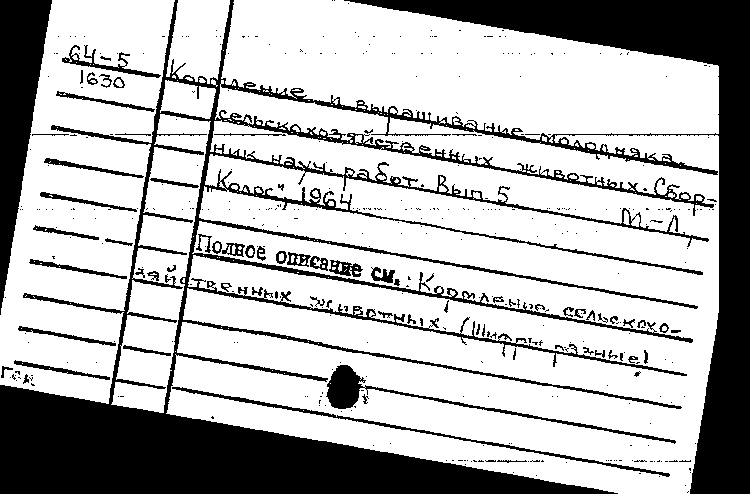 64-5
1630
Кормление и выращивание молодняка.
сельскохозяйственных животных. Сбор-
ник науч. работ. Вып. 5 М.-Л.,
„Колос", 1964
Полное описание см.: Кормление сельскохо-
зяйственных животных. (Шифры разные)